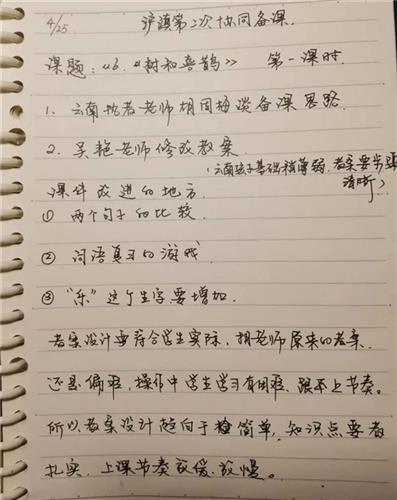 4/25
沪滇第二次协同备课.
课题:《6.《树和喜鹊》 第一课时.
1、云南执教老师胡国梅谈备课思路
2、吴艳老师修改教案
(云南孩子基础稍薄弱,教案要步骤清晰)
课件改进的地方
① 两个句子的比较.
② 词语复习的游戏
③ “乐”这个生字要增加.
教案设计要符合学生实际,胡老师原来的教案
还是偏难,操作中学生学习有困难、跟不上节奏。
所以教案设计趋向于稳简单,知识点要教
扎实,上课节奏放缓、放慢。